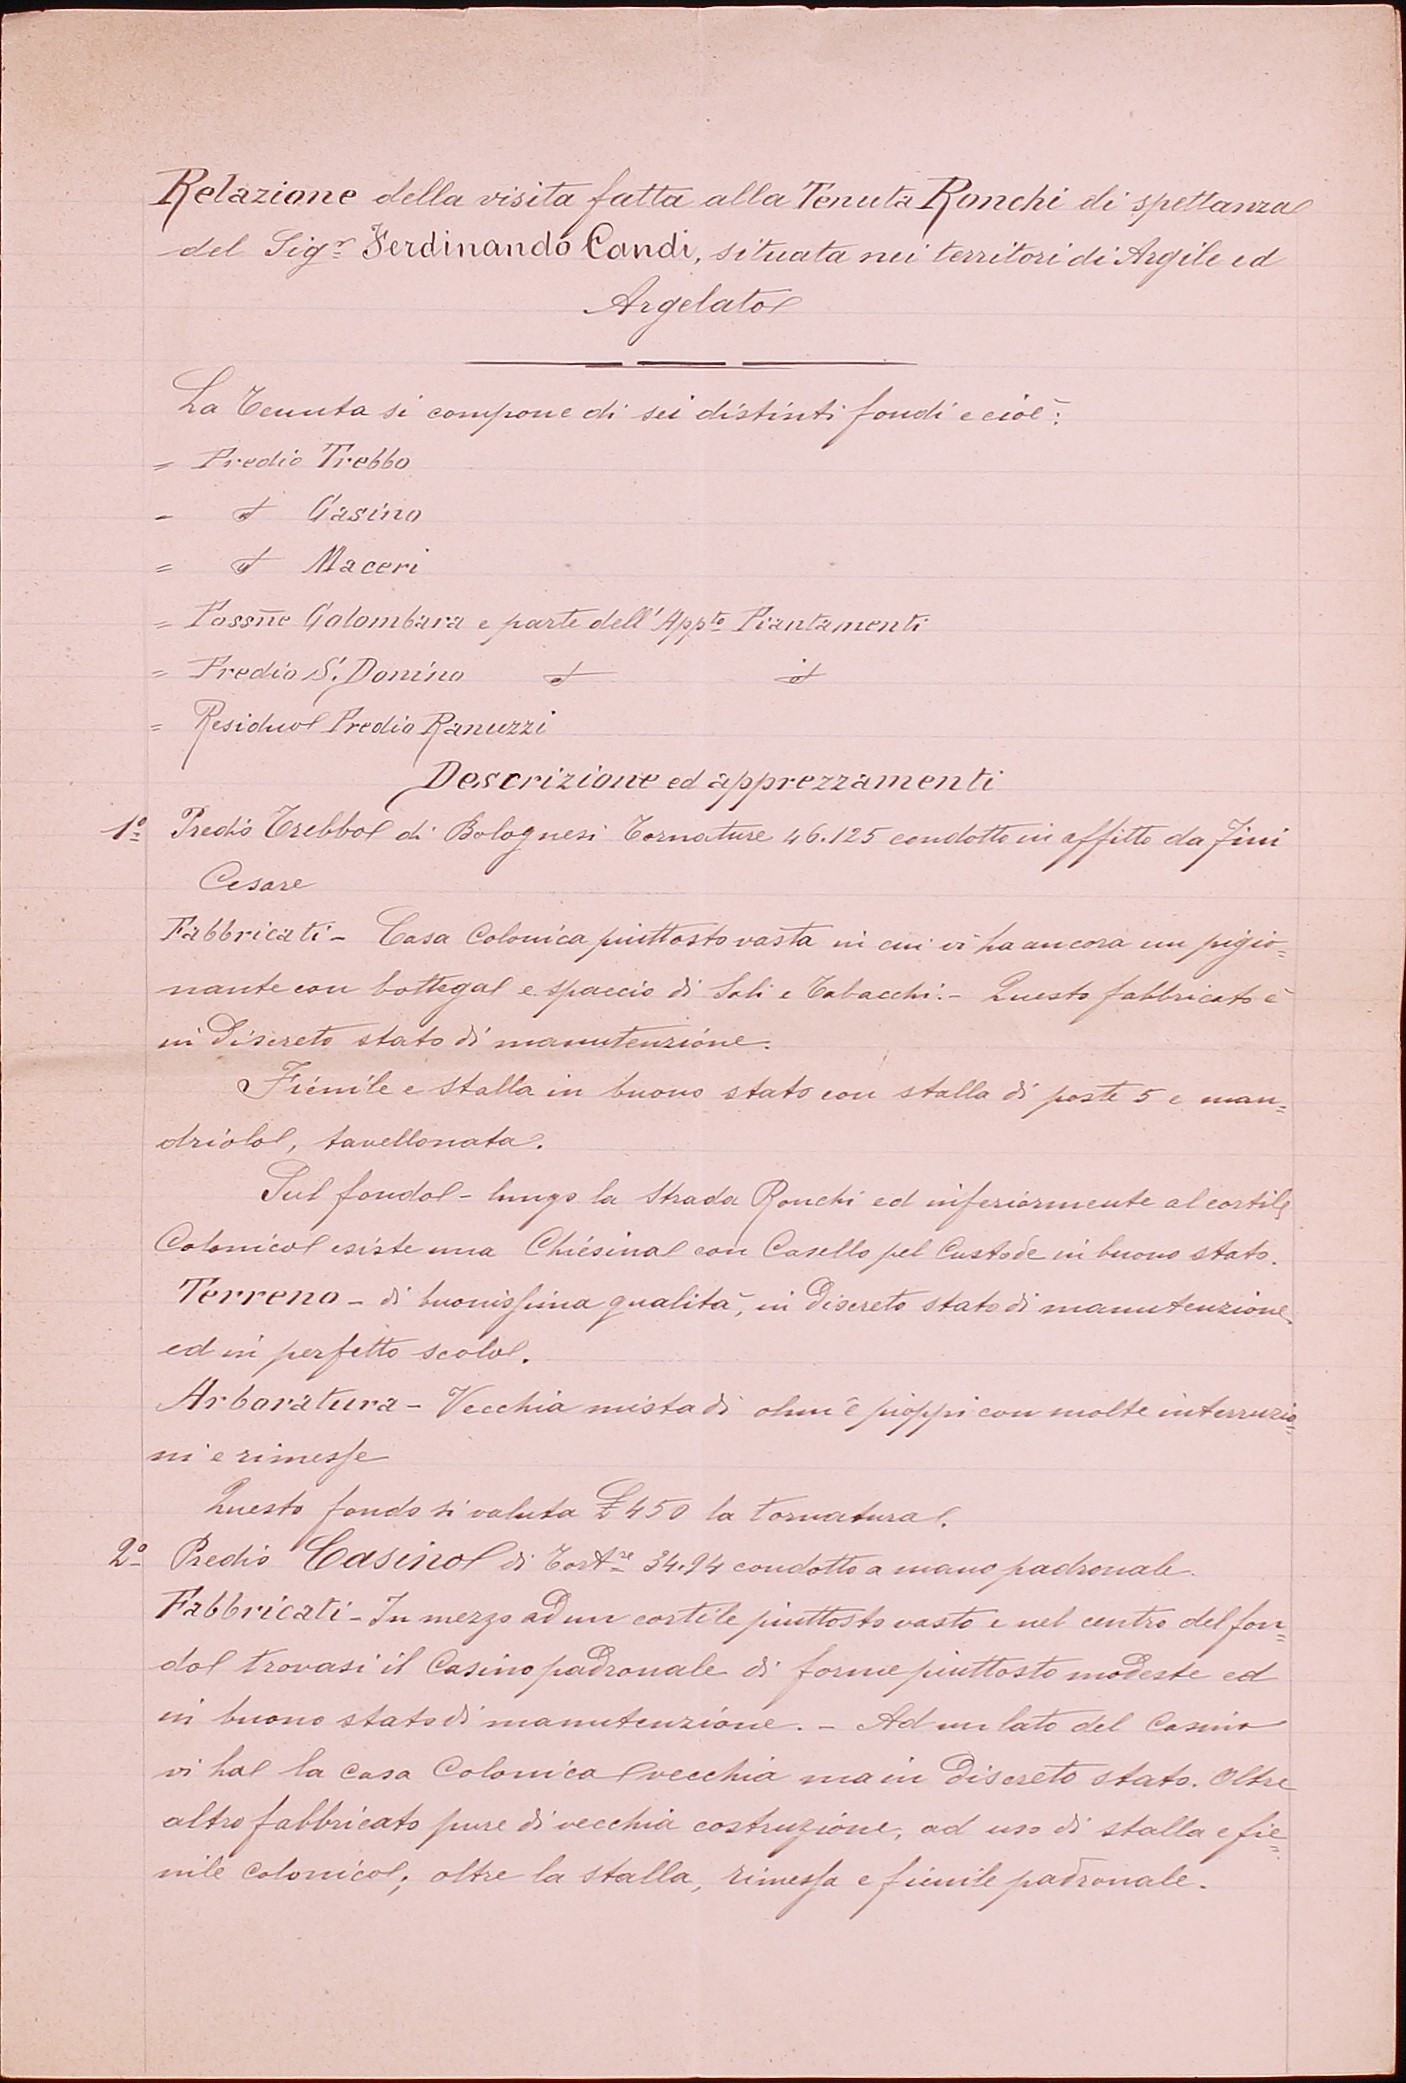 Relazione della visita fatta alla Tenuta Ronchi di spettanza
del Sigr Ferdinando Candi, situata nei territori di Argile ed
Argelato
La Tenuta si compone di sei distinti fondi e cioè:
= Predio Trebbo
= d Casino
= d Maceri
= Possñe Colombara e parte dell'Appto Piantamenti
= Predio S. Donino d id
= Residuo Predio Ranuzzi
Descrizione ed apprezzamenti
1º Predio Trebbo di Bolognesi Tornature 46.125 condotto in affitto da Fini
Cesare
Fabbricati - Casa Colonica piuttosto vasta in cui vi ha ancora un pigio=
nante con bottega e spaccio di Sali e Tabacchi. - Questo fabbricato è
in discreto stato di manutenzione.
Fienile e stalla in buono stato con stalla di poste 5 e man=
driolo, tavellonata.
Sul fondo - lungo la Strada Ronchi ed inferiormente al cortile
Colonico esiste una Chiesina con Casello pel Custode in buono stato.
Terreno - di buonissima qualità, in discreto stato di manutenzione
ed in perfetto scolo.
Arboratura - Vecchia mista di olmi e pioppi con molte interruzio=
ni e rimesse
Questo fondo si valuta £ 450 la tornatura.
2º Predio Casino di Tortre 34.94 condotto a mano padronale.
Fabbricati - In mezzo ad un cortile piuttosto vasto e nel centro del fon=
do trovasi il Casino padronale di forme piuttosto modeste ed
in buono stato di manutenzione. - Ad un lato del Casino
vi ha la casa Colonica vecchia ma in discreto stato. Oltre
altro fabbricato pure di vecchia costruzione, ad uso di stalla e fie=
nile colonico; oltre la stalla, rimessa e fienile padronale.